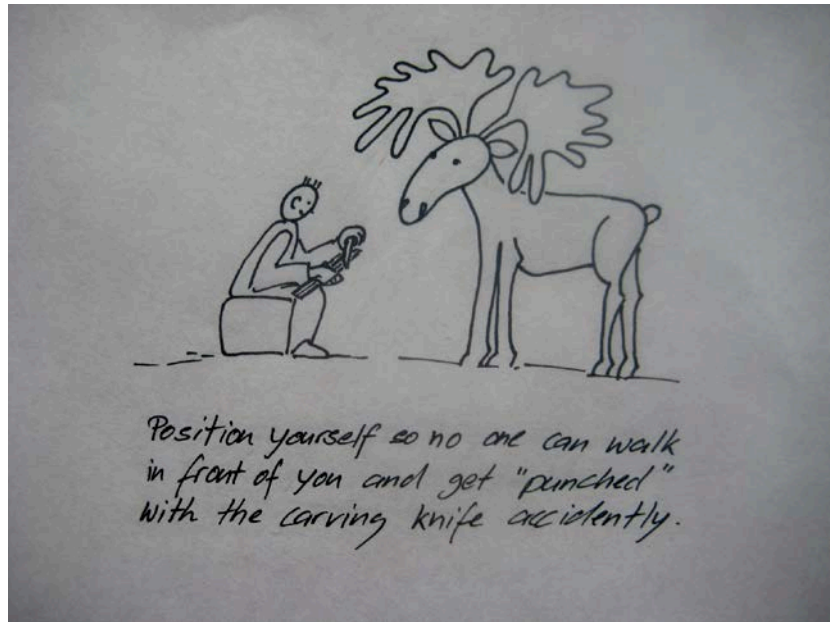 Position yourself so no one can walk
in front of you and get "punched"
with the carving knife accidently.